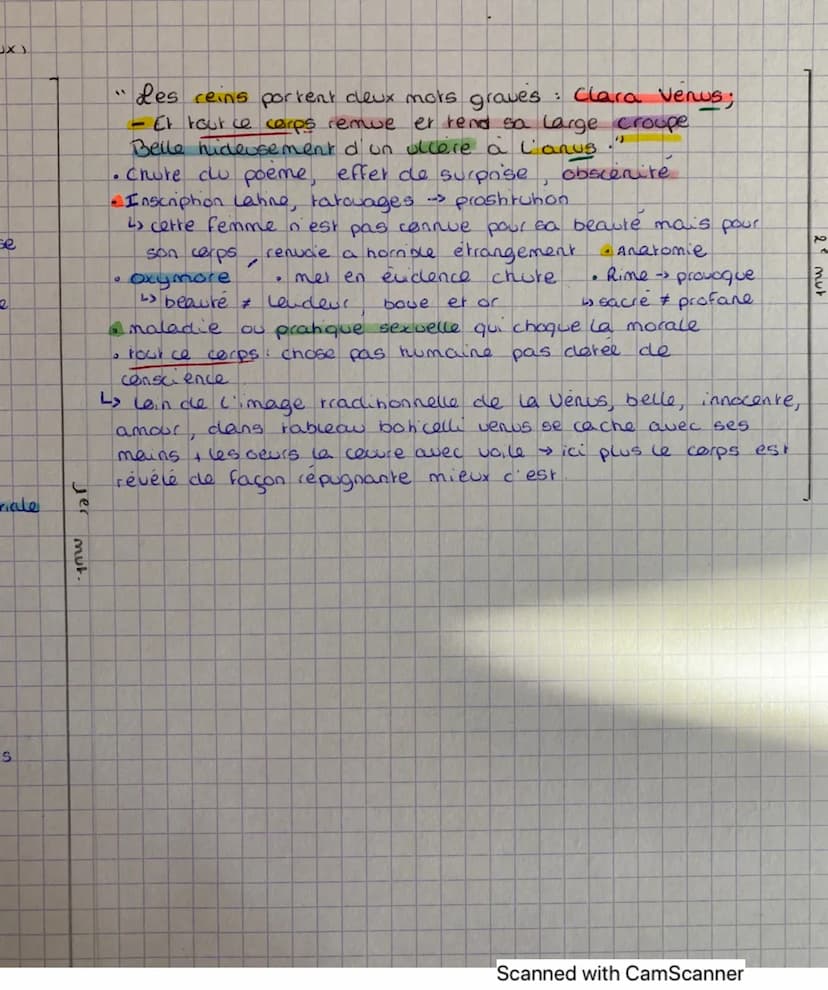 ux)
" Les reins portent deux mots gravés : Clara Venus;
- Et tout ce corps remue et tend sa large croupe
Belle hideusement d'un ulcère à l'anus."
• Chute du poème, effet de surprise, obscénité
• Inscription latine, tatouages → prostitution
↳ cette femme n'est pas connue pour sa beauté mais pour
son corps, renvoie a horrible étrangement • Anatomie
• oxymore • met en évidence chute • Rime → provoque
↳ beauté ≠ laideur, boue et or ↳ sacré ≠ profane
• maladie ou pratique sexuelle qui choque la morale
• tout ce corps : chose pas humaine pas dotée de
conscience
↳ loin de l'image traditionnelle de la Vénus, belle, innocente,
amour, dans tableau boticelli venus se cache avec ses
mains + les seurs la couvre avec voile → ici plus le corps est
révélé de façon répugnante mieux c'est
se
e
riale
s
1er mvt.
2e mvt
Scanned with CamScanner